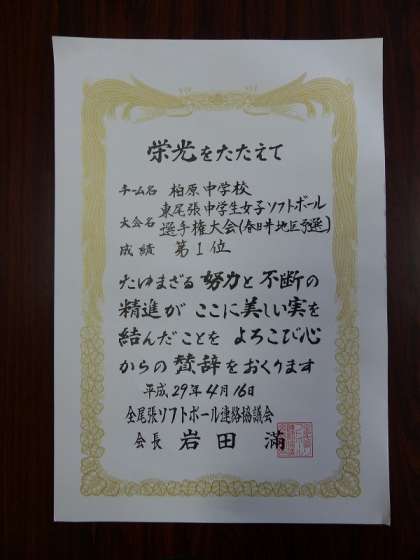 栄光をたたえて
チーム名 柏原中学校
大会名 東尾張中学生女子ソフトボール
選手権大会(春日井地区予選)
成績 第1位
たゆまざる努力と不断の
精進がここに美しい実を
結んだことをよろこび心
からの賛辞をおくります
平成29年4月16日
全尾張ソフトボール連絡協議会
会長 岩田 満